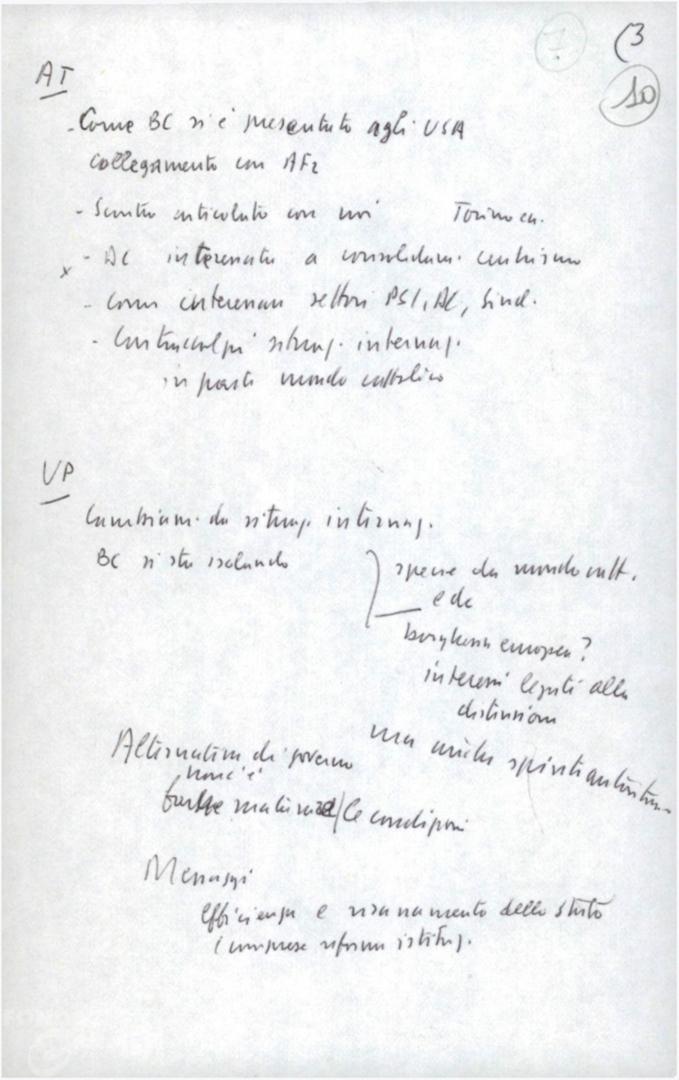 (3
10
AT
- Come BC si è presentato agli USA
collegamento con AF2
- Scontro articolato con noi Torino ecc.
x - DC interessata a consolidam. centrismo
- Come interessare settori PSI, DC, Sind.
- Contraccolpi situaz. internaz.
in parte mondo cattolico
VP
Cambiam. da situaz. internaz.
BC si sta isolando
specie da mondo catt.
e da
borghesia europea?
interessi legati alla
distensione
ma anche spinte
Alternativa di governo
non c'è
mature le condizioni
Messaggi
Efficienza e risanamento dello stato
comprese riforme istituz.